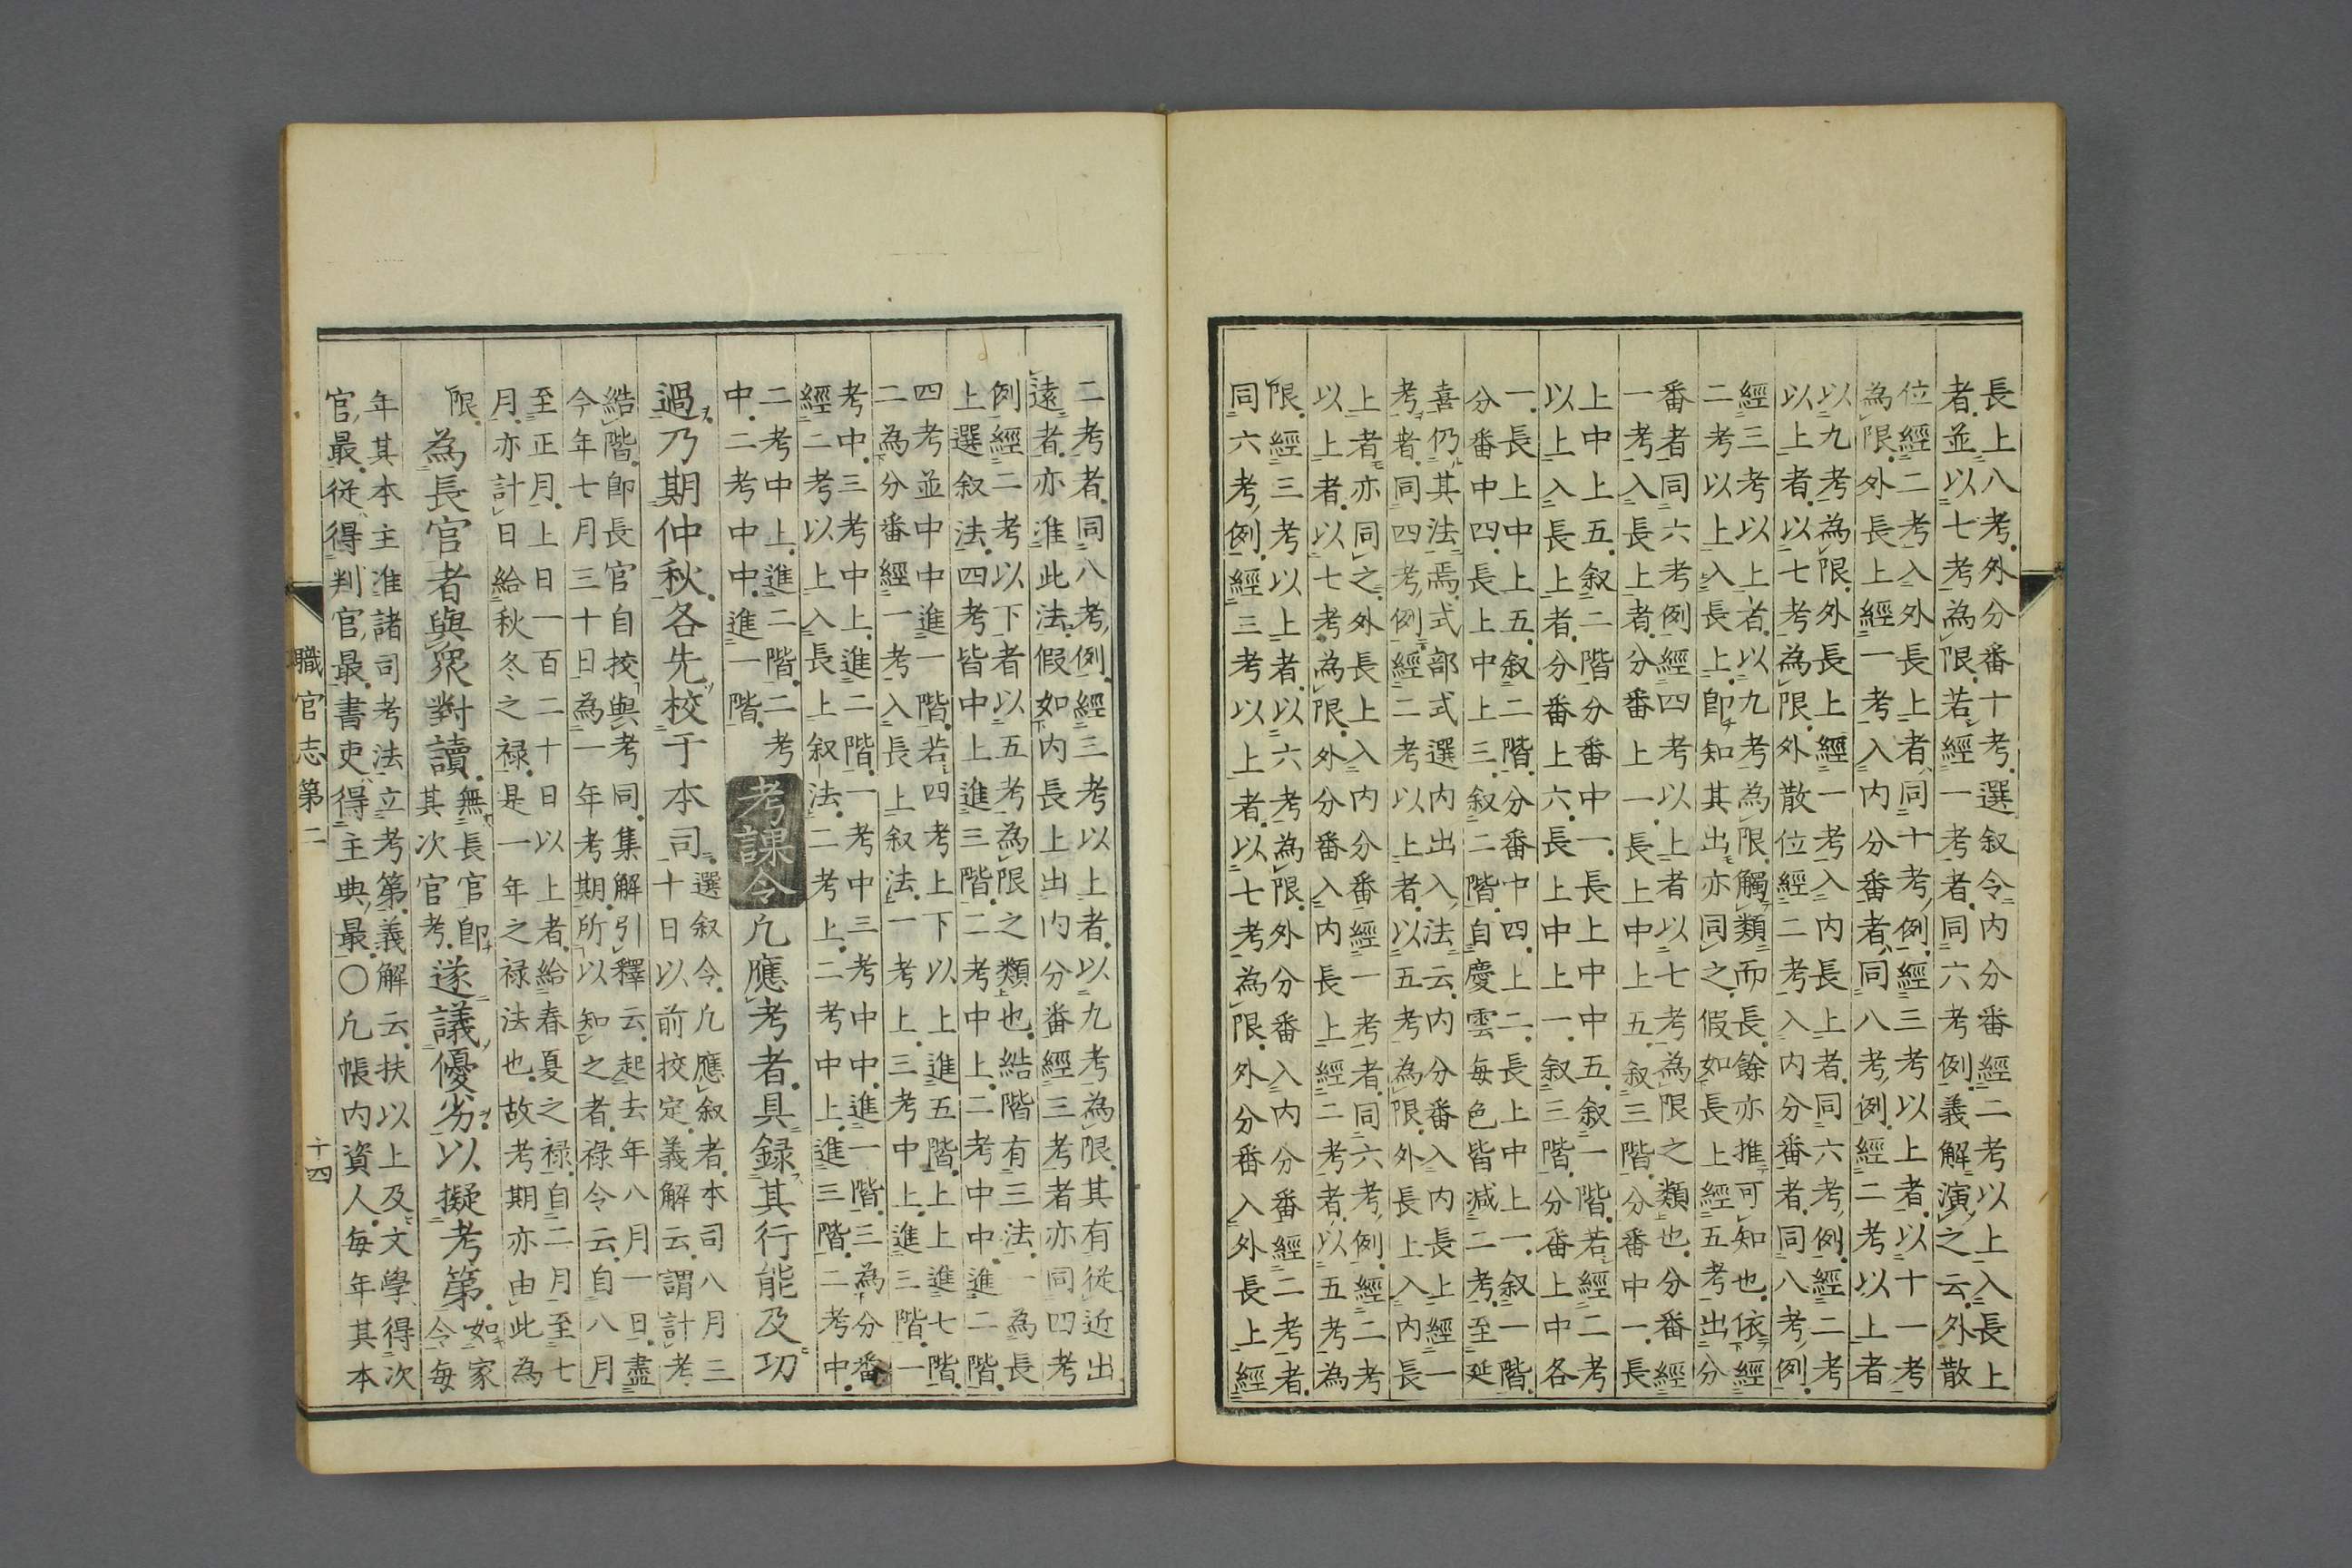 長上八考外分番十考選叙令内分番經二考以上入長上
者並以七考為限若經一考者同六考例義解演之云外散
位經二考入外長上者同十考例經三考以上者以十一考
為限外長上經一考入内分番者同八考例經二考以上者
以九考為限外長上經一考入内長上者同六考例經二考
以上者以七考為限外散位經二考入内分番者同八考例
經三考以上者以九考為限觸類而長餘亦推可知也依經
二考以上入長上即知其出亦同之假如長上經五考出分
番者同六考例經四考以上者以七考為限之類也分番經
一考入長上者分番上一長上中上五叙三階分番中一長
上中上五叙二階分番中一長上中中五叙一階若經二考
以上入長上者分番上六長上中上一叙三階分番上中各
一長上中上五叙二階分番中四上二長上中上一叙一階
分番中四長上中上三叙二階自慶雲毎色皆減二考至延
喜仍其法焉式部式選内出入法云内分番入内長上經一
考者同四考例經二考以上者以五考為限外長上入内長
上者亦同之外長上入内分番經一考者同六考例經二考
以上者以七考為限外分番入内長上經二考者以五考為
限經三考以上者以六考為限外分番入内分番經二考者
同六考例經三考以上者以七考為限外分番入外長上經
二考者同八考例經三考以上者以九考為限其有從近出
遠者亦准此法假如内長上出内分番經三考者亦同四考
例經二考以下者以五考為限之類也結階有三法一為長
上選叙法四考皆中上進三階二考中上二考中中進二階
四考並中中進一階若四考上下以上進五階上上進七階
二為分番經一考入長上叙法一考上三考中上進三階一
考中三考中上進二階一考中三考中中進一階三為分番
經二考以上入長上叙法二考上二考中上進三階二考中
二考中上進二階二考
中二考中中進一階
考課令凡應考者具録其行能及功
過乃期仲秋各先校于本司
選叙令凡應叙者本司八月三
十日以前挍定義解云謂計考
結階即長官自挍與考同集解引釋云起去年八月一日盡
今年七月三十日為一年考期所以知之者祿令云自八月
至正月上日一百二十日以上者給春夏之禄自二月至七
月亦計日給秋冬之禄是一年之禄法也故考期亦由此為
限
為長官者與衆對讀
無長官即
其次官考
遂議優劣以擬考第
如家
令毎
年其本主准諸司考法立考第義解云扶以上及文學得次
官最從得判官最書吏得主典最○凡帳内資人毎年其本
職官志第二
十四